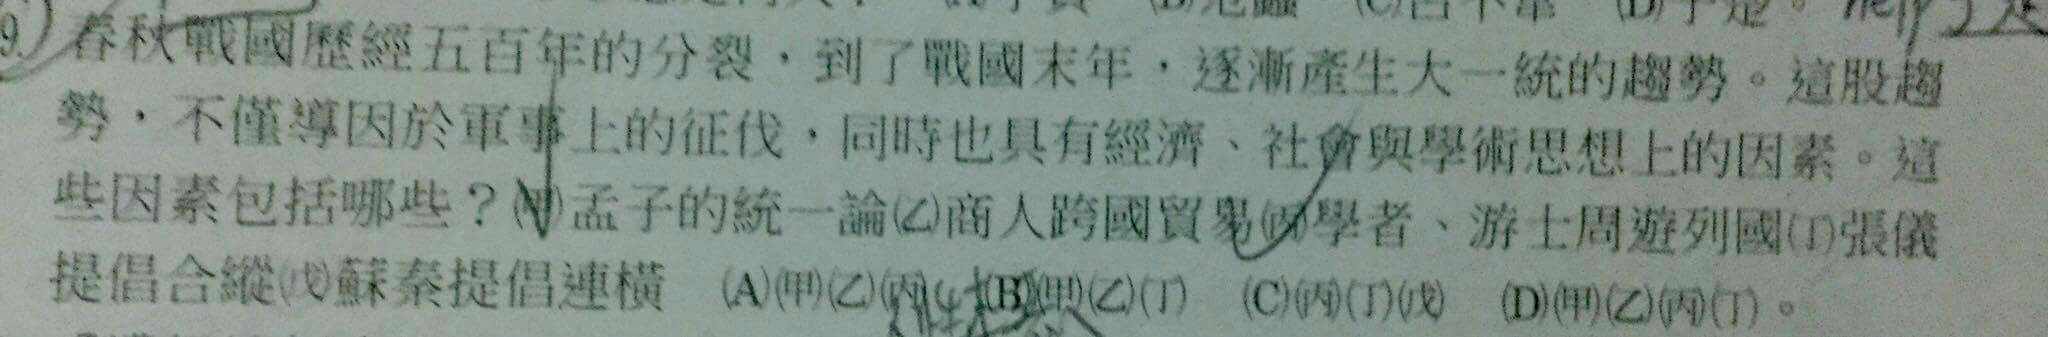 9. 春秋戰國歷經五百年的分裂，到了戰國末年，逐漸產生大一統的趨勢。這股趨
勢，不僅導因於軍事上的征伐，同時也具有經濟、社會與學術思想上的因素。這
些因素包括哪些？(甲)孟子的統一論(乙)商人跨國貿易(丙)學者、游士周遊列國(丁)張儀
提倡合縱(戊)蘇秦提倡連橫　(A)(甲)(乙)(丙)　(B)(甲)(乙)(丁)　(C)(丙)(丁)(戊)　(D)(甲)(乙)(丙)(丁)。